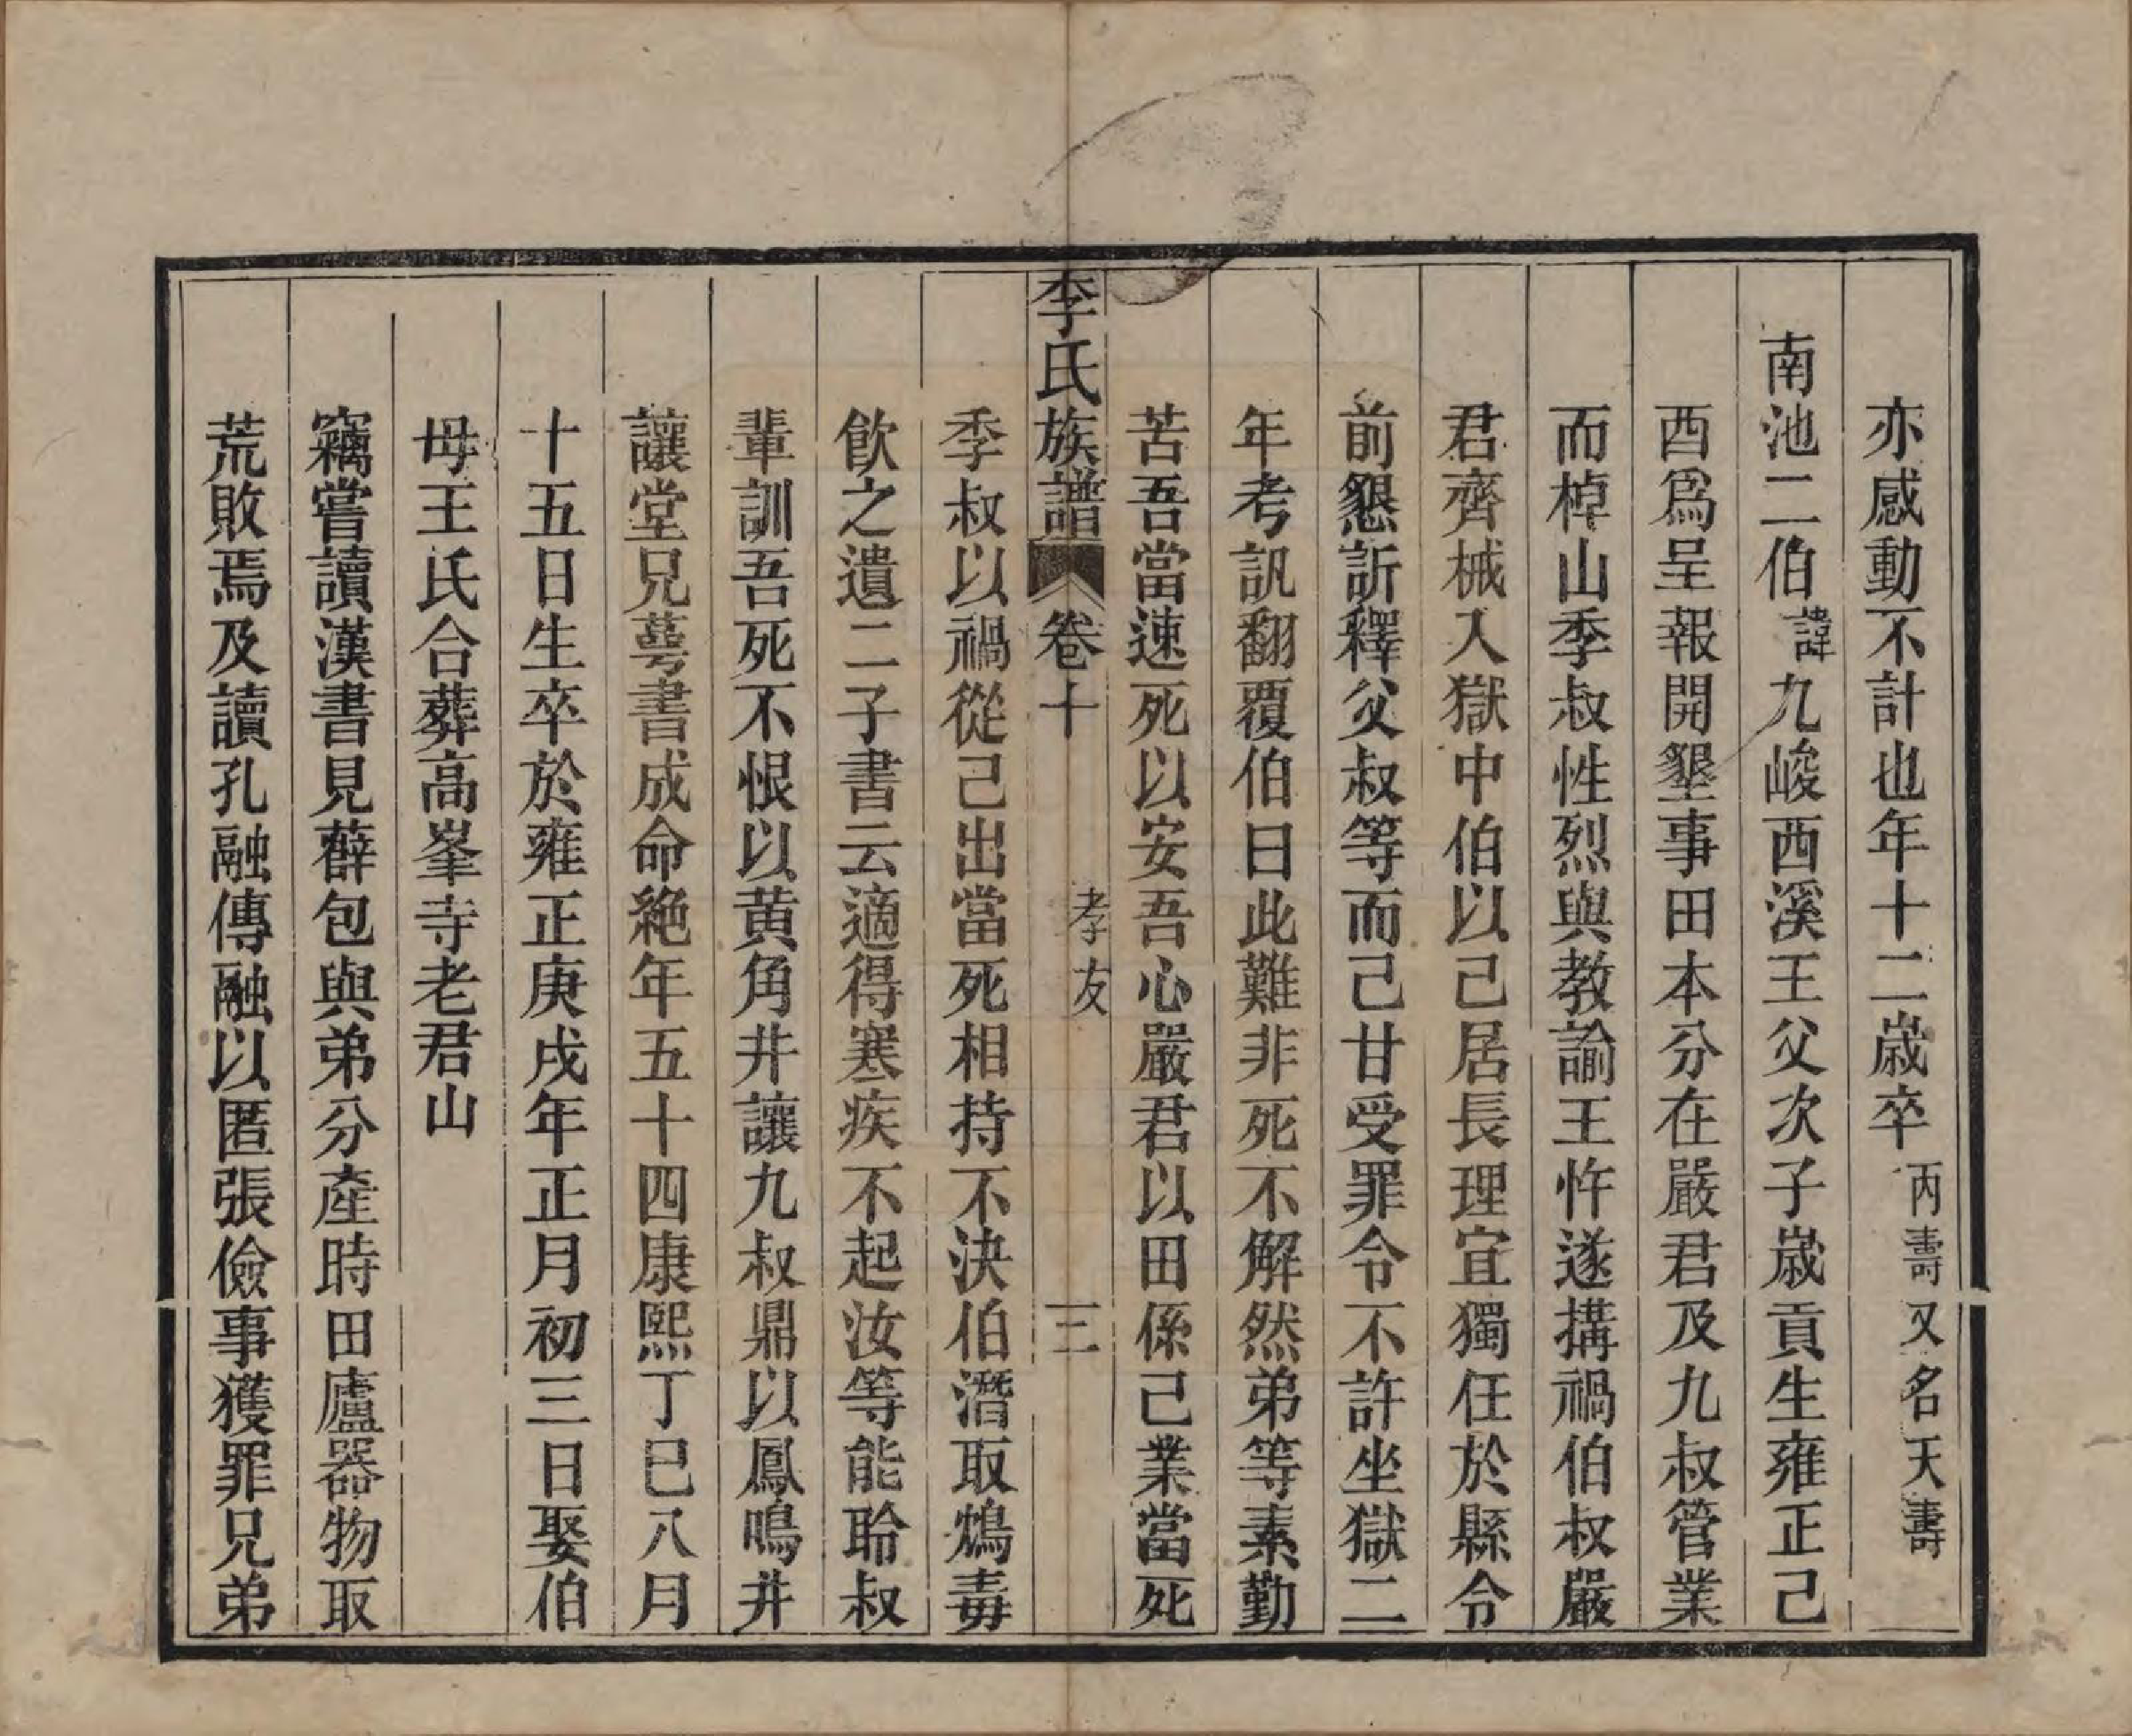 亦感動不計也年十二歲卒丙壽又名天壽
南池二伯諱九峻西溪王父次子歲貢生雍正己
酉爲呈報開墾事田本分在嚴君及九叔管業
而棹山季叔性烈與教諭王忤遂搆禍伯叔嚴
君齊械入獄中伯以己居長理宜獨任於縣令
前懇訴釋父叔等而己甘受罪令不許坐獄二
年考訊翻覆伯曰此難非死不解然弟等素勤
苦吾當速死以安吾心嚴君以田係己業當死
李氏族譜 卷十 孝友 三
季叔以禍從己出當死相持不決伯潛取鴆毒
飮之遺二子書云適得寒疾不起汝等能聆叔
輩訓吾死不恨以黃角井讓九叔鼎以鳳鳴井
讓堂兄蕚書成命絕年五十四康熙丁巳八月
十五日生卒於雍正庚戌年正月初三日娶伯
母王氏合葬高峯寺老君山
竊嘗讀漢書見薛包與弟分產時田廬器物取
荒敗焉及讀孔融傳融以匿張儉事獲罪兄弟